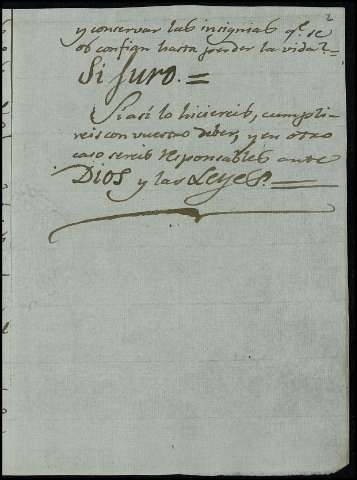 y conservar las insignias q.e se
os confian hasta perder la vida? =
Si Juro. =
Si asi lo hiciereis, cumpli-
reis con vuestro deber, y en otro
caso sereis responsables ante
DIOS y las Leyes. =